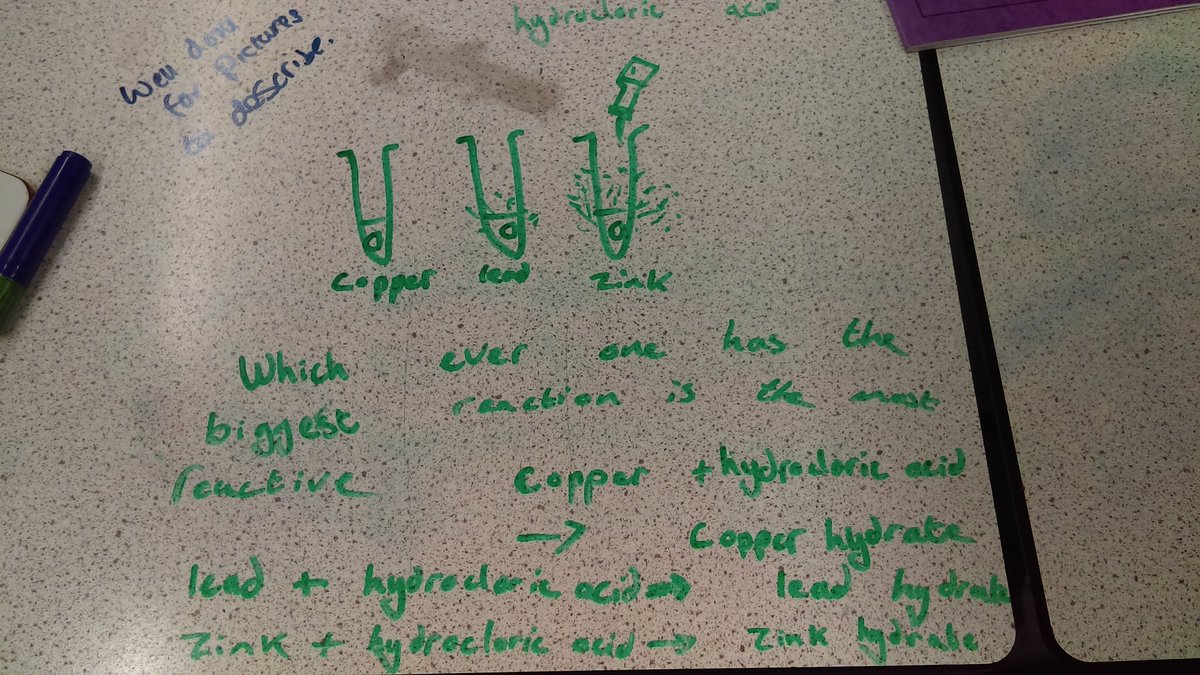 hydrocloric acid
Well done
for pictures
to describe.
copper lead zink
Which ever one has the
biggest reaction is the most
reactive
Copper + hydrocloric acid
→ Copper hydrate
lead + hydrocloric acid → lead hydrate
Zink + hydrocloric acid → Zink hydrate